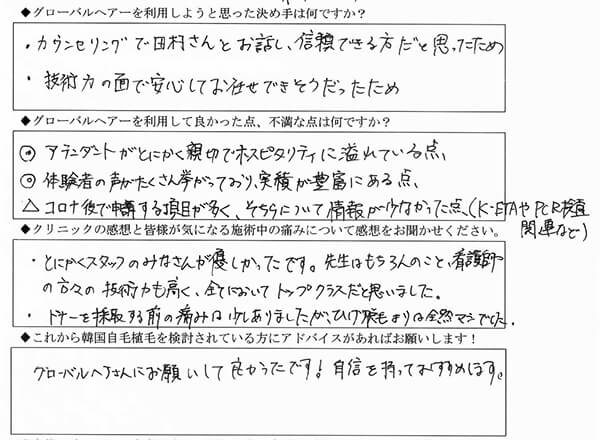 ◆グローバルヘアーを利用しようと思った決め手は何ですか？
・カウンセリングで田村さんとお話し、信頼できる方だと思ったため
・技術力の面で安心してお任せできそうだったため
◆グローバルヘアーを利用して良かった点、不満な点は何ですか？
◎ アテンダントがとにかく親切でホスピタリティに溢れている点、
◎ 体験者の声がたくさん挙がっており、実積が豊富にある点、
△ コロナ後で申請する項目が多く、そちらについて情報が少なかった点、(K-ETAやPCR検査
関連など)
◆クリニックの感想と皆様が気になる施術中の痛みについて感想をお聞かせください。
・とにかくスタッフのみなさんが優しかったです。先生はもちろんのこと、看護師
の方々の技術力も高く、全てにおいてトップクラスだと思いました。
・ドナーを採取する前の痛みは少しありましたが、ひげ脱毛よりは全然マシでした.
◆これから韓国自毛植毛を検討されている方にアドバイスがあればお願いします！
グローバルヘアさんにお願いして良かったです！自信を持っておすすめします。